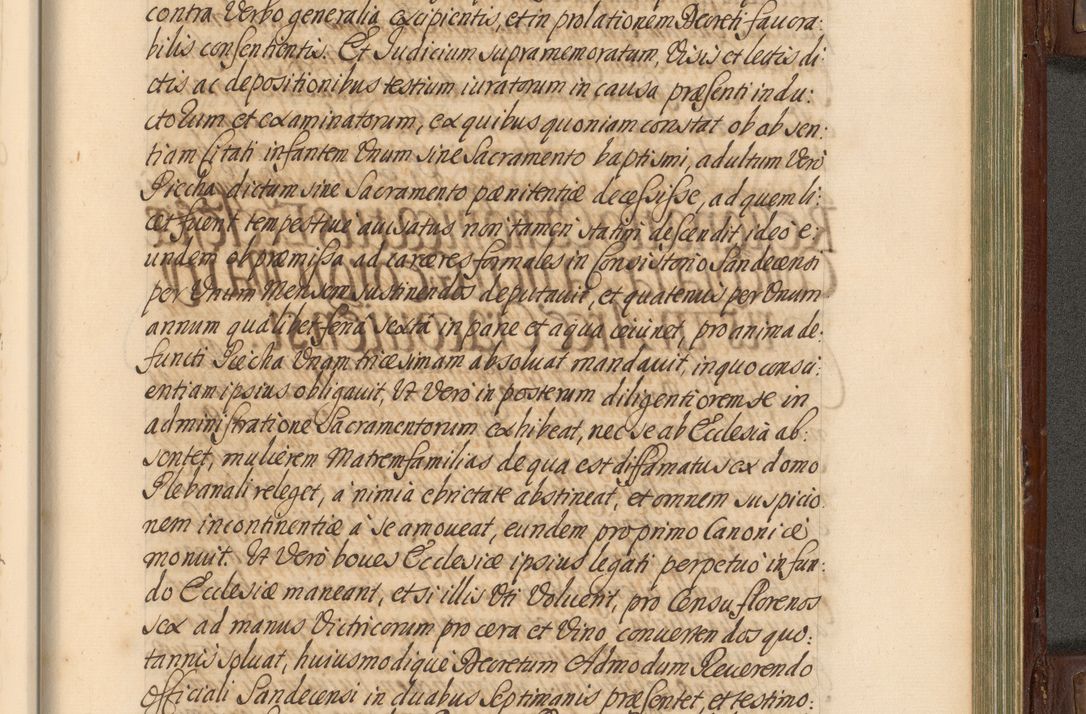 contra Verbo generalia excipientis, et in prolationem Decreti favora:
bilis consentientis. Et Judicium supra memoratum, Visis et lectis di:
ctis ac depositionibus testium iuratorum in causa præsenti indu:
ctorum et examinatorum, ex quibus quoniam constat ob absen:
tiam Citati infantem Vnum sine Sacramento baptismi, adultum Verò
Piecha dictum sine Sacramento pænitentiæ decessisse, ad quem li:
cet fuerit tempestive auisatus non tamen statim descendit ideo e:
undem ob præmissa ad carceres formales in Consistorio Sandecensi
per Vnum Mensem sustinendos deputauit, et quatenus per Vnum
annum qualibet feria sexta in pane et aqua ieiunet, pro anima de:
functi Piecha Vnam tricesimam absoluat mandauit, in quo consci:
entiam ipsius obligauit, Vt Vero in posterum diligentiorem se in
administratione Sacramentorum exhibeat, nec se ab Ecclesia ab:
sentet, mulierem Matremfamilias de qua est diffamatus ex domo
Plebanali releget, a nimia ebrietate abstineat, et omnem suspicio
nem incontinentiæ a se amoueat, eundem pro primo Canonicè
monuit. Vt Verò boues Ecclesiæ ipsius legati perpetuo in fun:
do Ecclesiæ maneant, et si illis Vti Voluerit, pro Censu florenos
sex ad manus Victricorum pro cera et Vino conuertendos quo:
tannis soluat, huiusmodique Decretum Admodum Reuerendo
Officiali Sandecensi in duabus Septimanis præsentet, et testimo: